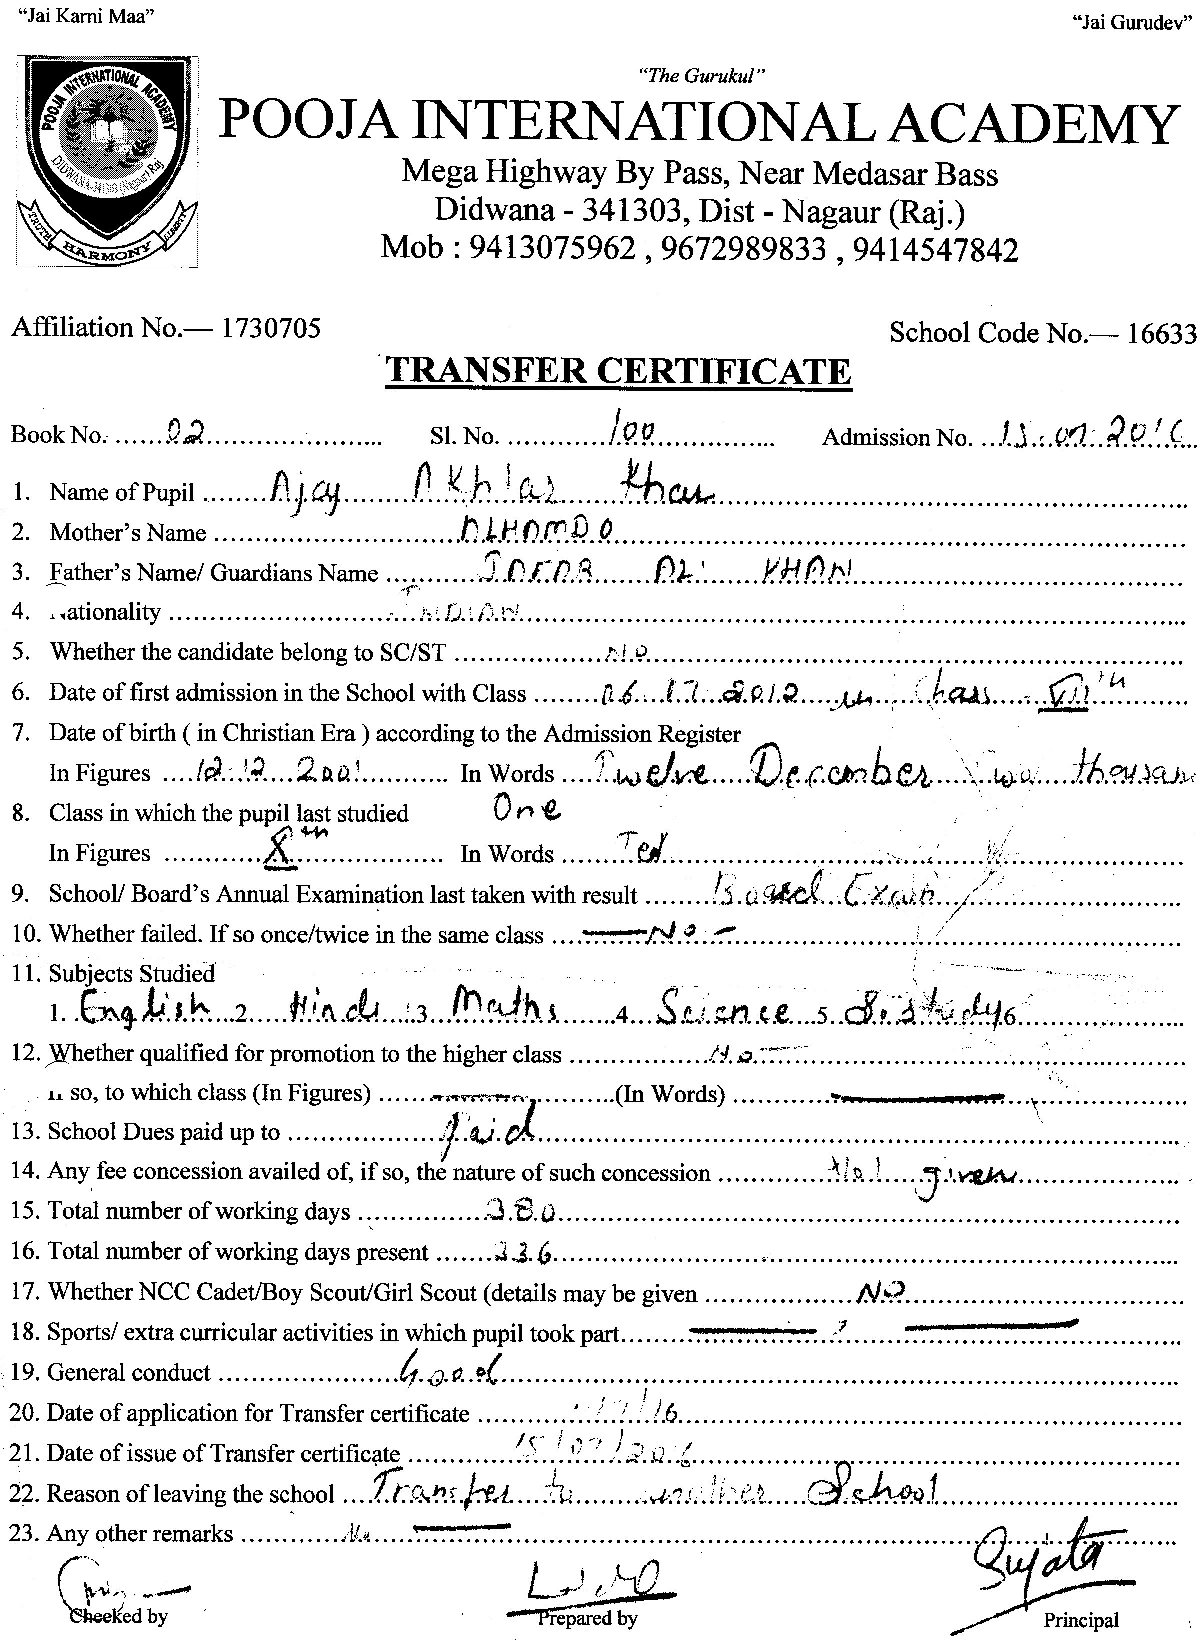 “Jai Karni Maa”
“Jai Gurudev”
POOJA INTERNATIONAL ACADEMY
TRUTH HARMONY
“The Gurukul”
POOJA INTERNATIONAL ACADEMY
Mega Highway By Pass, Near Medasar Bass
Didwana - 341303, Dist - Nagaur (Raj.)
Mob : 9413075962 , 9672989833 , 9414547842
Affiliation No.— 1730705
School Code No.— 16633
TRANSFER CERTIFICATE
Book No. 02 Sl. No. 100 Admission No.
1. Name of Pupil Ajay Khan
2. Mother’s Name ALHAMDO
3. Father’s Name/ Guardians Name JAFAR ALI KHAN
4. ationality INDIAN
5. Whether the candidate belong to SC/ST NO
6. Date of first admission in the School with Class 2012 in Class
7. Date of birth ( in Christian Era ) according to the Admission Register
In Figures 12.12.2001 In Words Twelve December Two thousan
One
8. Class in which the pupil last studied
In Figures Xth In Words Ten
9. School/ Board’s Annual Examination last taken with result Board Exam
10. Whether failed. If so once/twice in the same class — No —
11. Subjects Studied
1. English 2. Hindi 3. Maths 4. Science 5. S. Study 6
12. Whether qualified for promotion to the higher class No —
so, to which class (In Figures) — (In Words) —
13. School Dues paid up to Paid
14. Any fee concession availed of, if so, the nature of such concession given
15. Total number of working days 380
16. Total number of working days present 336
17. Whether NCC Cadet/Boy Scout/Girl Scout (details may be given NO
18. Sports/ extra curricular activities in which pupil took part — —
19. General conduct Good
20. Date of application for Transfer certificate
21. Date of issue of Transfer certificate 15/07/2016
22. Reason of leaving the school Transfer to another School
23. Any other remarks No —
Sujata
Cheeked by
Prepared by
Principal